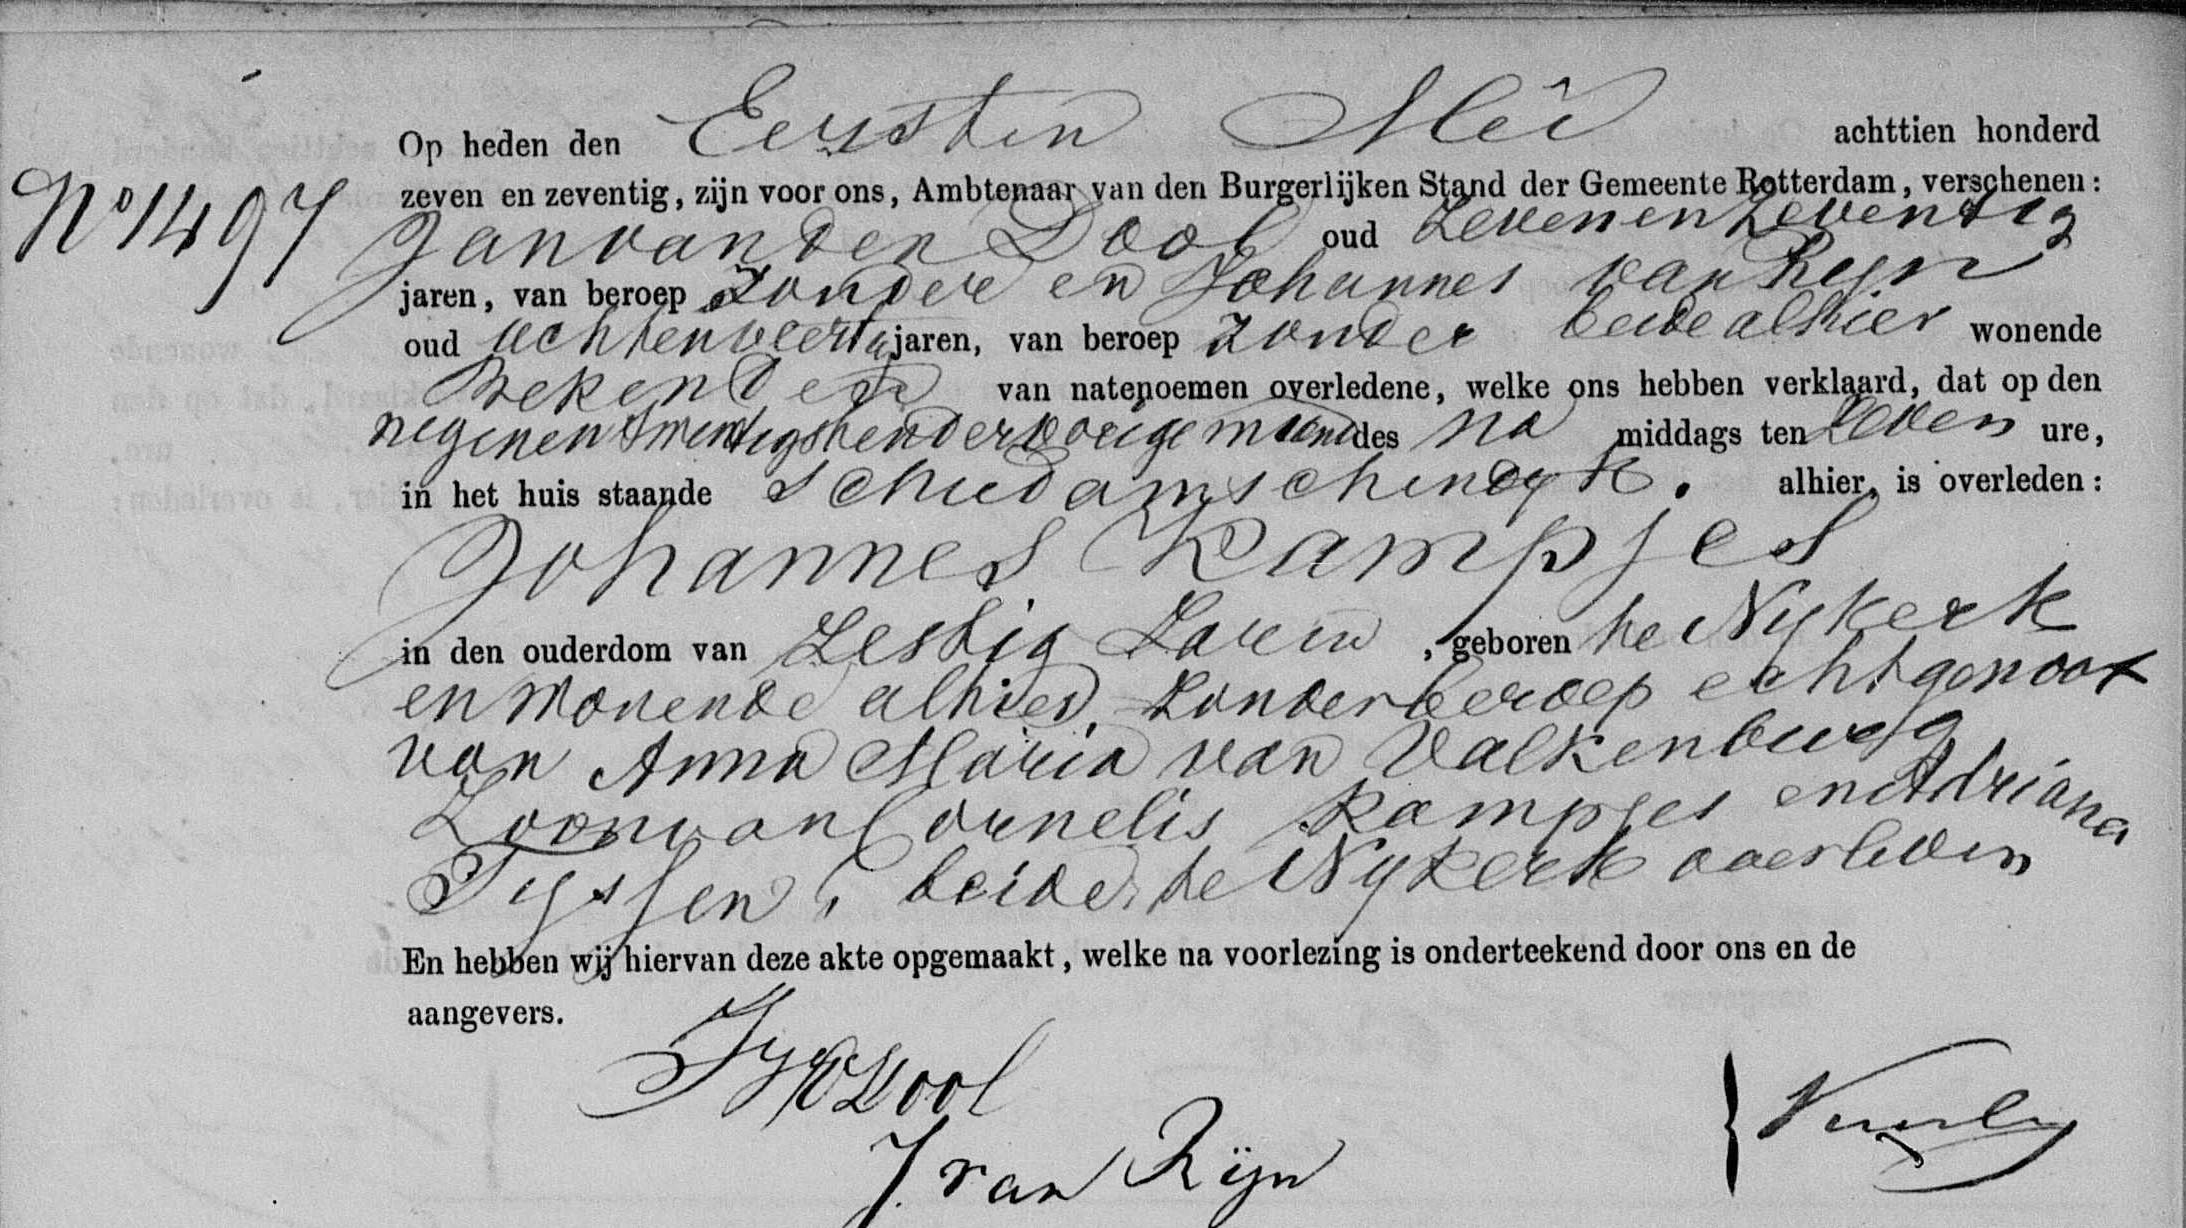 Op heden den Eersten Mei achttien honderd
No 1497
zeven en zeventig, zijn voor ons, Ambtenaar van den Burgerlijken Stand der Gemeente Rotterdam, verschenen:
Jan van den Dool oud Zevenenzeventig
jaren, van beroep zonder en Johannes van Reyn
oud achtenveertig jaren, van beroep zonder beide alhier wonende
Bekenden van natenoemen overledene, welke ons hebben verklaard, dat op den
negenentwintigsten der vorige maand des na middags ten zeven ure,
in het huis staande Schiedamschendyk. alhier, is overleden:
Johannes Kampjes
in den ouderdom van Zestig Jaren, geboren te Nykerk
en wonende alhier, zonder beroep echtgenoot
van Anna Maria van Valkenburg
Zoon van Cornelis Kampjes en Adriana
Tyssen, beide te Nykerk overleden
En hebben wij hiervan deze akte opgemaakt, welke na voorlezing is onderteekend door ons en de
aangevers.
Dool
J. van Rijn